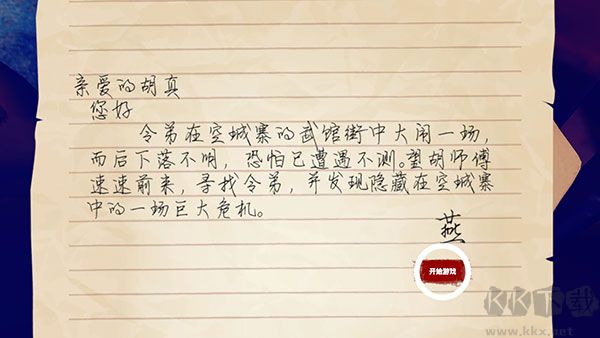 亲爱的胡真
您好
令弟在空城寨的武馆街中大闹一场，
而后下落不明，恐怕已遭遇不测。望胡师傅
速速前来，寻找令弟，并发现隐藏在空城寨
中的一场巨大危机。
燕
开始游戏
KK下载
www.kkx.net